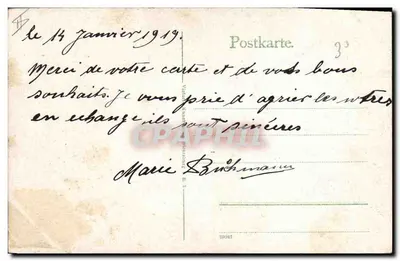 le 14 Janvier 1919.
Postkarte.
Merci de votre carte et de vos bons
souhaits. Je vous prie d'agrier les nôtres
en echange ils sont sincéres
CPAPHIL
Marie